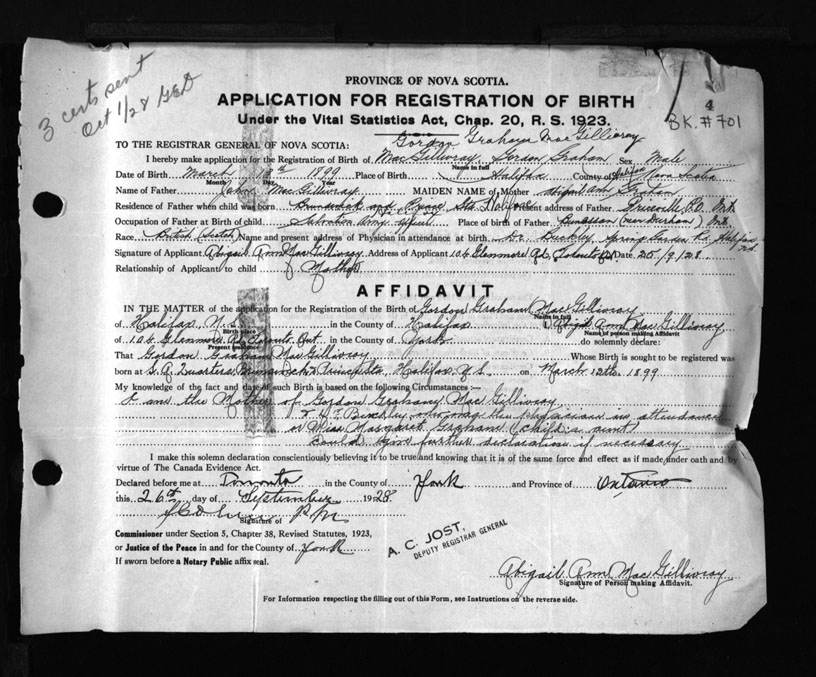 3 certs sent
Oct 1/28 GED
4
BK. # 701
PROVINCE OF NOVA SCOTIA.
APPLICATION FOR REGISTRATION OF BIRTH
Under the Vital Statistics Act, Chap. 20, R. S. 1923.
Gordon Graham MacGillivray
TO THE REGISTRAR GENERAL OF NOVA SCOTIA:
I hereby make application for the Registration of Birth of MacGillivray, Gordon Graham Sex Male
Name in full
Date of Birth March 12th 1899 Place of Birth Halifax County of Halifax Nova Scotia
Month Day Year
Name of Father John MacGillivray MAIDEN NAME of Mother Abigail Ann Graham
Residence of Father when child was born Brunswick and Prince Sts Halifax Present address of Father Priceville, P.O. Ont.
Occupation of Father at Birth of child Salvation Army Officer Place of birth of Father Bunessan (near Durham) Ont
Race British (Scotch) Name and present address of Physician in attendance at birth Dr. Buckley, Spring Garden Rd, Halifax
Signature of Applicant Abigail Ann MacGillivray Address of Applicant 106 Glenmore Rd, Toronto Date 20/9/28.
Relationship of Applicant to child Mother
AFFIDAVIT
IN THE MATTER of the application for the Registration of the Birth of Gordon Graham MacGillivray
Name in full
of Halifax N.S. in the County of Halifax I, Abigail Ann MacGillivray
Birth place
Name of person making Affidavit
of 106 Glenmore Rd Toronto Ont in the County of York do solemnly declare:
Present residence
That Gordon Graham MacGillivray Whose Birth is sought to be registered was
born at S.A. Quarters, Brunswick & Prince Sts, Halifax, N.S. on March 12th 1899
My knowledge of the fact and date of such Birth is based on the following Circumstances:—
I am the Mother of Gordon Graham MacGillivray
Buckley, who was the physician in attendance
or Miss Margaret Graham (child's aunt)
could give further declaration if necessary
I make this solemn declaration conscientiously believing it to be true and knowing that it is of the same force and effect as if made under oath and by
virtue of The Canada Evidence Act.
Declared before me at Toronto in the County of York and Province of Ontario
this 26th day of September 1928.
Signature of
Commissioner under Section 5, Chapter 38, Revised Statutes, 1923,
or Justice of the Peace in and for the County of York
If sworn before a Notary Public affix seal.
A. C. JOST,
DEPUTY REGISTRAR GENERAL
Abigail Ann MacGillivray
Signature of Person making Affidavit.
For Information respecting the filling out of this Form, see Instructions on the reverse side.